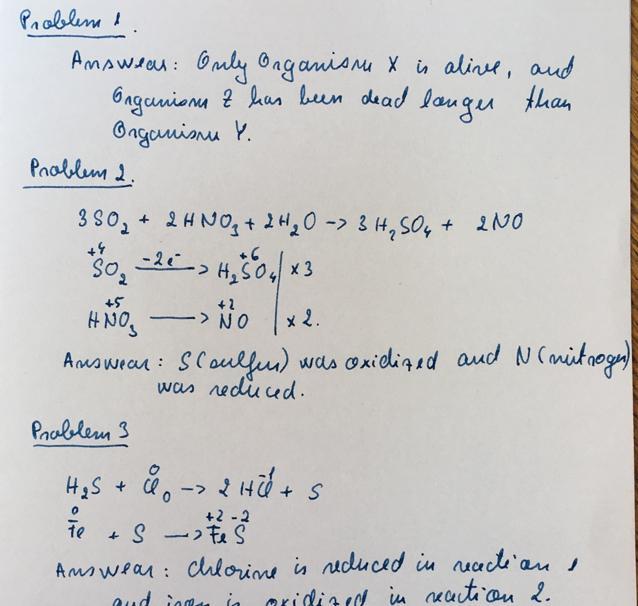 Problem 1.
Answear: Only Organism X is alive, and
Organism Z has been dead longer than
Organism Y.
Problem 2.
3SO₂ + 2HNO₃ + 2H₂O -> 3H₂SO₄ + 2NO
+4 +6
SO₂ -2e⁻ -> H₂SO₄ | x3
+5 +2
HNO₃ -> NO | x2.
Answear: S(sulfur) was oxidized and N(nitrogen)
was reduced.
Problem 3
0 -1
H₂S + Cl₀ -> 2HCl + S
0 +2 -2
Fe + S -> FeS
Answear: Chlorine is reduced in reaction 1
and iron is oxidized in reaction 2.